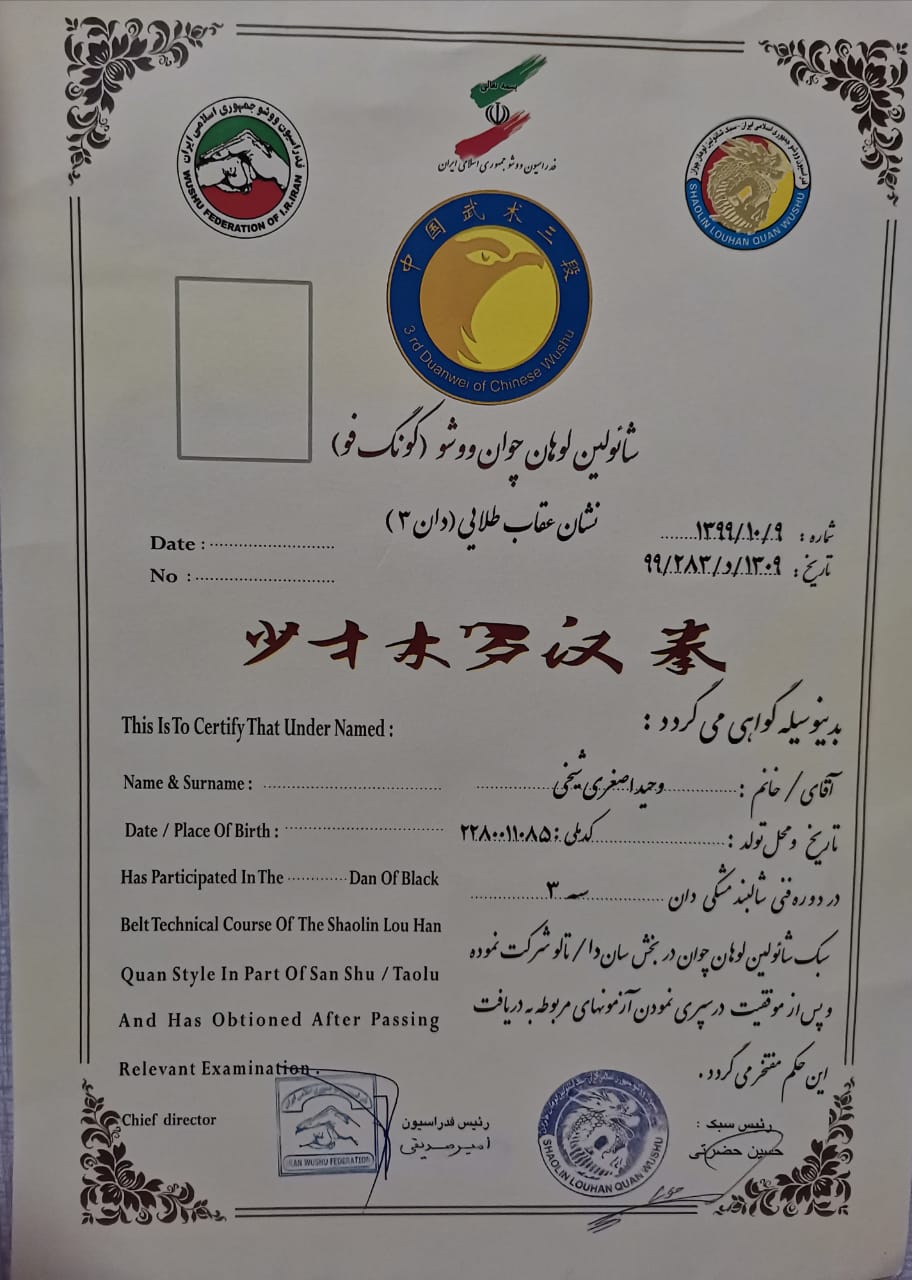 بسمه تعالی
فدراسیون ووشو جمهوری اسلامی ایران
فدراسیون ووشو جمهوری اسلامی ایران
WUSHU FEDERATION OF I.R.IRAN
فدراسیون ووشو جمهوری اسلامی ایران - سبک شائولین لوهان چوان
SHAOLIN LOUHAN QUAN WUSHU
中国武术三段
3 rd Duanwei of Chinese Wushu
شائولین لوهان چوان ووشو (کونگ فو)
نشان عقاب طلایی (دان ۳)
شماره : ۱۳۹۹/۱۰/۹
تاریخ : ۹۹/۲۸۳/د/۱۳۰۹
Date :
No :
少才木罗汉拳
This Is To Certify That Under Named :
بدینوسیله گواهی می گردد :
Name & Surname :
آقای / خانم : وحید اصغری شیخی
Date / Place Of Birth :
تاریخ و محل تولد : کدملی : ۲۲۸۰۰۱۱۰۸۵
Has Participated In The ............ Dan Of Black
در دوره فنی شالبند مشکی دان سه ۳
Belt Technical Course Of The Shaolin Lou Han
سبک شائولین لوهان چوان در بخش ساندا / تالو شرکت نموده
Quan Style In Part Of San Shu / Taolu
و پس از موفقیت در سپری نمودن آزمونهای مربوطه به دریافت
And Has Obtioned After Passing
این حکم مفتخر می گردد .
Relevant Examination .
Chief director
رئیس فدراسیون
امیر صدیقی
رئیس سبک :
حسین حضرتی
IRAN WUSHU FEDERATION
SHAOLIN LOUHAN QUAN WUSHU